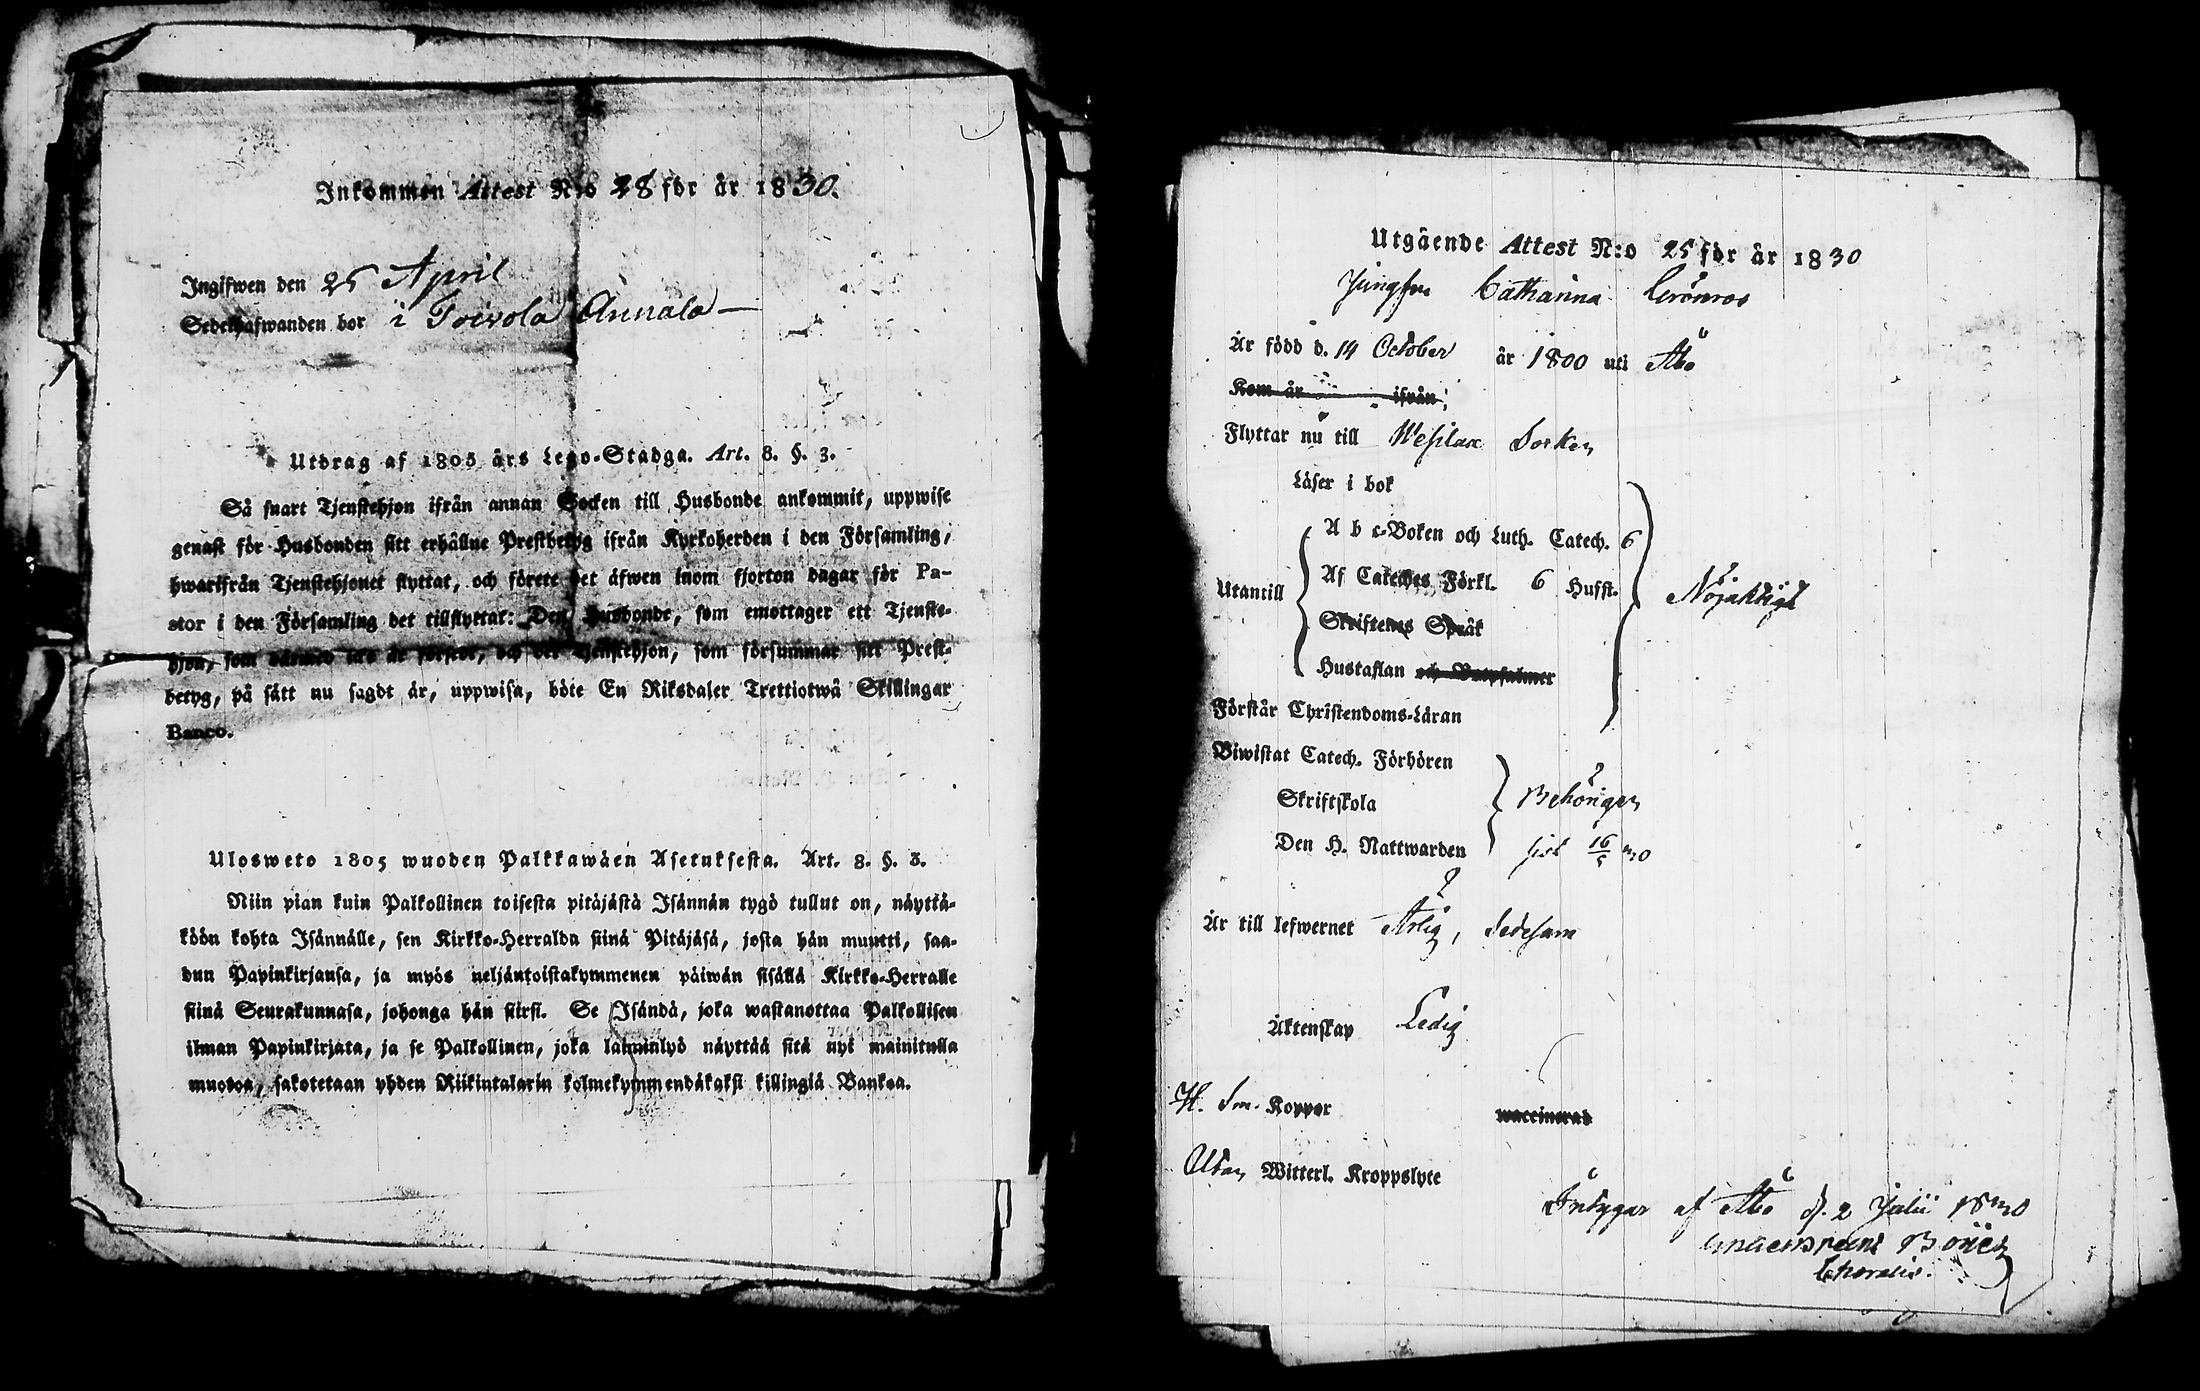 Inkommen Attest N:o 28 för år 1830.
Ingifwen den 25 April
Sedelhafwanden bor i Toivola Annala
Utdrag af 1805 års Lego-Stadga. Art. 8. §. 3.
Så snart Tjenstehjon ifrån annan Socken till Husbonde ankommit, uppwise
genast för Husbonden sitt erhållne Prestbetyg ifrån Kyrkoherden i den Församling,
hwarifrån Tjenstehjonet flyttat, och förete det äfwen inom fjorton dagar för Pa-
stor i den Församling det tillflyttat: Den Husbonde, som emottager ett Tjenste-
hjon, som därmed icke är försedt, och det Tjenstehjon, som försummar sitt Prest-
betyg, på sätt nu sagdt är, uppwisa, böte En Riksdaler Trettiotwå Skillingar
Banco.
Ulosweto 1805 wuoden Palkkawäen Asetuksesta. Art. 8. §. 3.
Niin pian kuin Palkollinen toisesta pitäjästä Isännän tygö tullut on, näyttä-
köön kohta Isännälle, sen Kirkko-Herralda siinä Pitäjäsä, josta hän muutti, saa-
dun Papinkirjansa, ja myös neljäntoistakymmenen päiwän sisällä Kirkko-Herralle
siinä Seurakunnasa, johonga hän siirsi. Se Isändä, joka wastanottaa Palkollisen
ilman Papinkirjata, ja se Palkollinen, joka laiminlyö näyttää sitä nyt mainitulla
muotoa, sakotetaan yhden Riikintalarin kolmekymmendäkaksi killingiä Bankoa.
Utgående Attest N:o 25 för år 1830
Jungfru Catharina Grönroos
Är född d. 14 October år 1800 uti Åbo
Kom år ifrån
Flyttar nu till Wesilax Socken
Läser i bok
Utantill
A b c-Boken och Luth. Catech. 6
Af Cateches Förkl. 6 Hufst.
Skriftenes Språk
Hustaflan och Botpsalmer
Nöjaktigt
Förstår Christendoms-Läran
Biwistat Catech. Förhören
Skriftskola
Den H. Nattwarden
Behörigen
sist 16/5 30
Är till lefwernet Ärlig, Sedesam
Äktenskap Ledig
H. Sm. Koppor waccinerad
Utan Witterl. Kroppslyte
Intygar af Åbo d. 2 Julii 1830